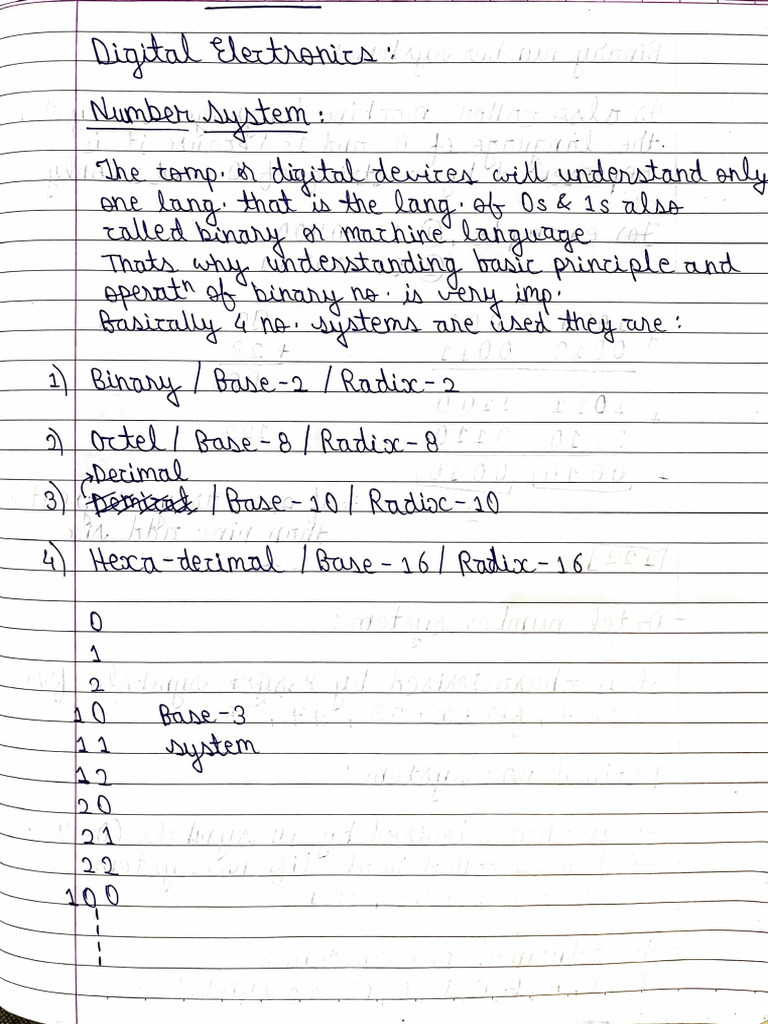 Digital Electronics:
Number system:
The comp. or digital devices will understand only
one lang. that is the lang. of 0s & 1s also
called binary or machine language
Thats why understanding basic principle and
operatⁿ of binary no. is very imp.
Basically 4 no. systems are used they are:
1) Binary / Base-2 / Radix-2
2) Octel / Base-8 / Radix-8
Decimal
3) / Base-10 / Radix-10
4) Hexa-decimal / Base-16 / Radix-16
0
1
2
10 Base-3
11 system
12
20
21
22
100